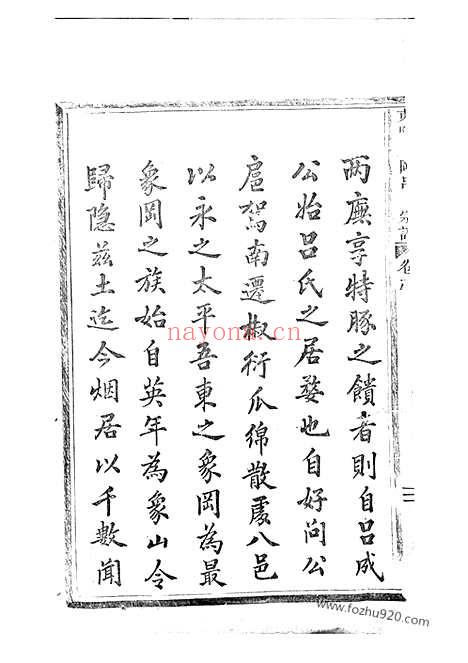 两廡享特豚之饋者則自呂成
公始呂氏之居婺也自好问公
扈駕南遷椒衍瓜綿散處八邑
以永之太平吾東之象岡為最
象岡之族始自英年為象山令
歸隐兹土迄今烟居以千數闻
nayona.cn
www.fozhu920.com